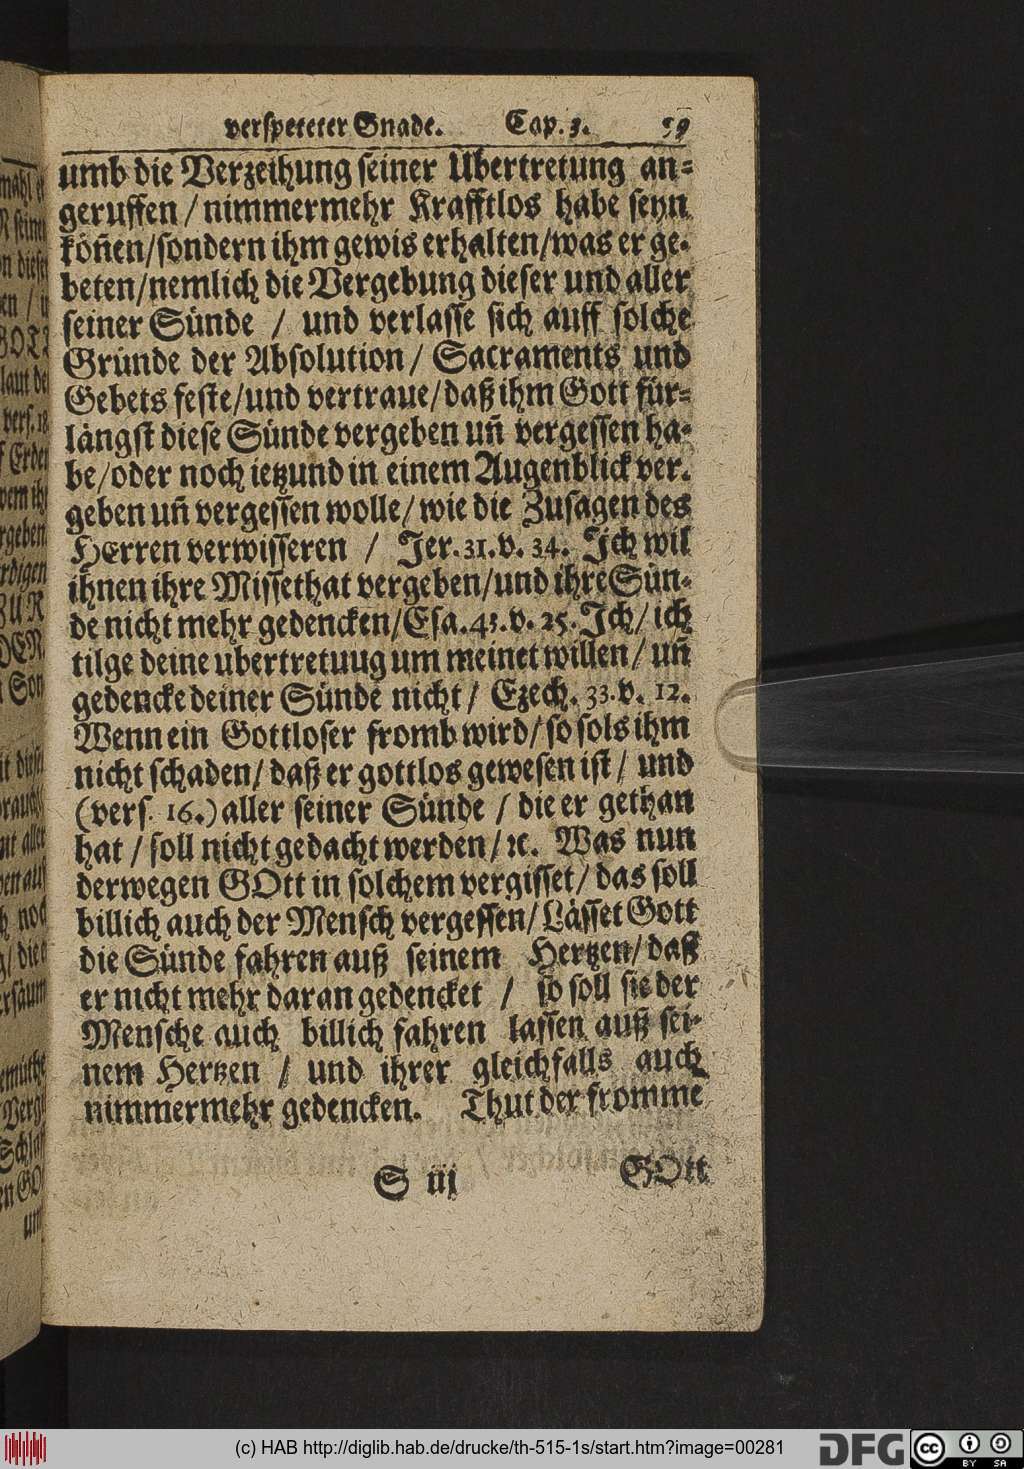 verspeteter Gnade. Cap. 3. 59
umb die Verzeihung seiner Ubertretung an-
geruffen / nimmermehr Krafftlos habe seyn
köñen/sondern ihm gewis erhalten/was er ge-
beten/nemlich die Vergebung dieser und aller
seiner Sünde / und verlasse sich auff solche
Gründe der Absolution/ Sacraments und
Gebets feste/und vertraue/daß ihm Gott für-
längst diese Sünde vergeben uñ vergessen ha-
be/oder noch ietzund in einem Augenblick ver-
geben uñ vergessen wolle/wie die Zusagen des
HErren verwisseren / Jer. 31. v. 34. Jch wil
ihnen ihre Missethat vergeben/und ihre Sün-
de nicht mehr gedencken/Esa. 43. v. 25. Jch/ ich
tilge deine ubertretuug um meinet willen/ uñ
gedencke deiner Sünde nicht/ Ezech. 33. v. 12.
Wenn ein Gottloser fromb wird/so sols ihm
nicht schaden/ daß er gottlos gewesen ist/ und
(vers. 16.) aller seiner Sünde / die er gethan
hat / soll nicht gedacht werden/ ꝛc. Was nun
derwegen GOtt in solchem vergisset/ das soll
billich auch der Mensch vergessen/ Lässet Gott
die Sünde fahren auß seinem Hertzen/ daß
er nicht mehr daran gedencket / so soll sie der
Mensche auch billich fahren lassen auß sei-
nem Hertzen / und ihrer gleichfalls auch
nimmermehr gedencken. Thut der fromme
S iij GOtt
(c) HAB http://diglib.hab.de/drucke/th-515-1s/start.htm?image=00281
DFG
cc BY SA